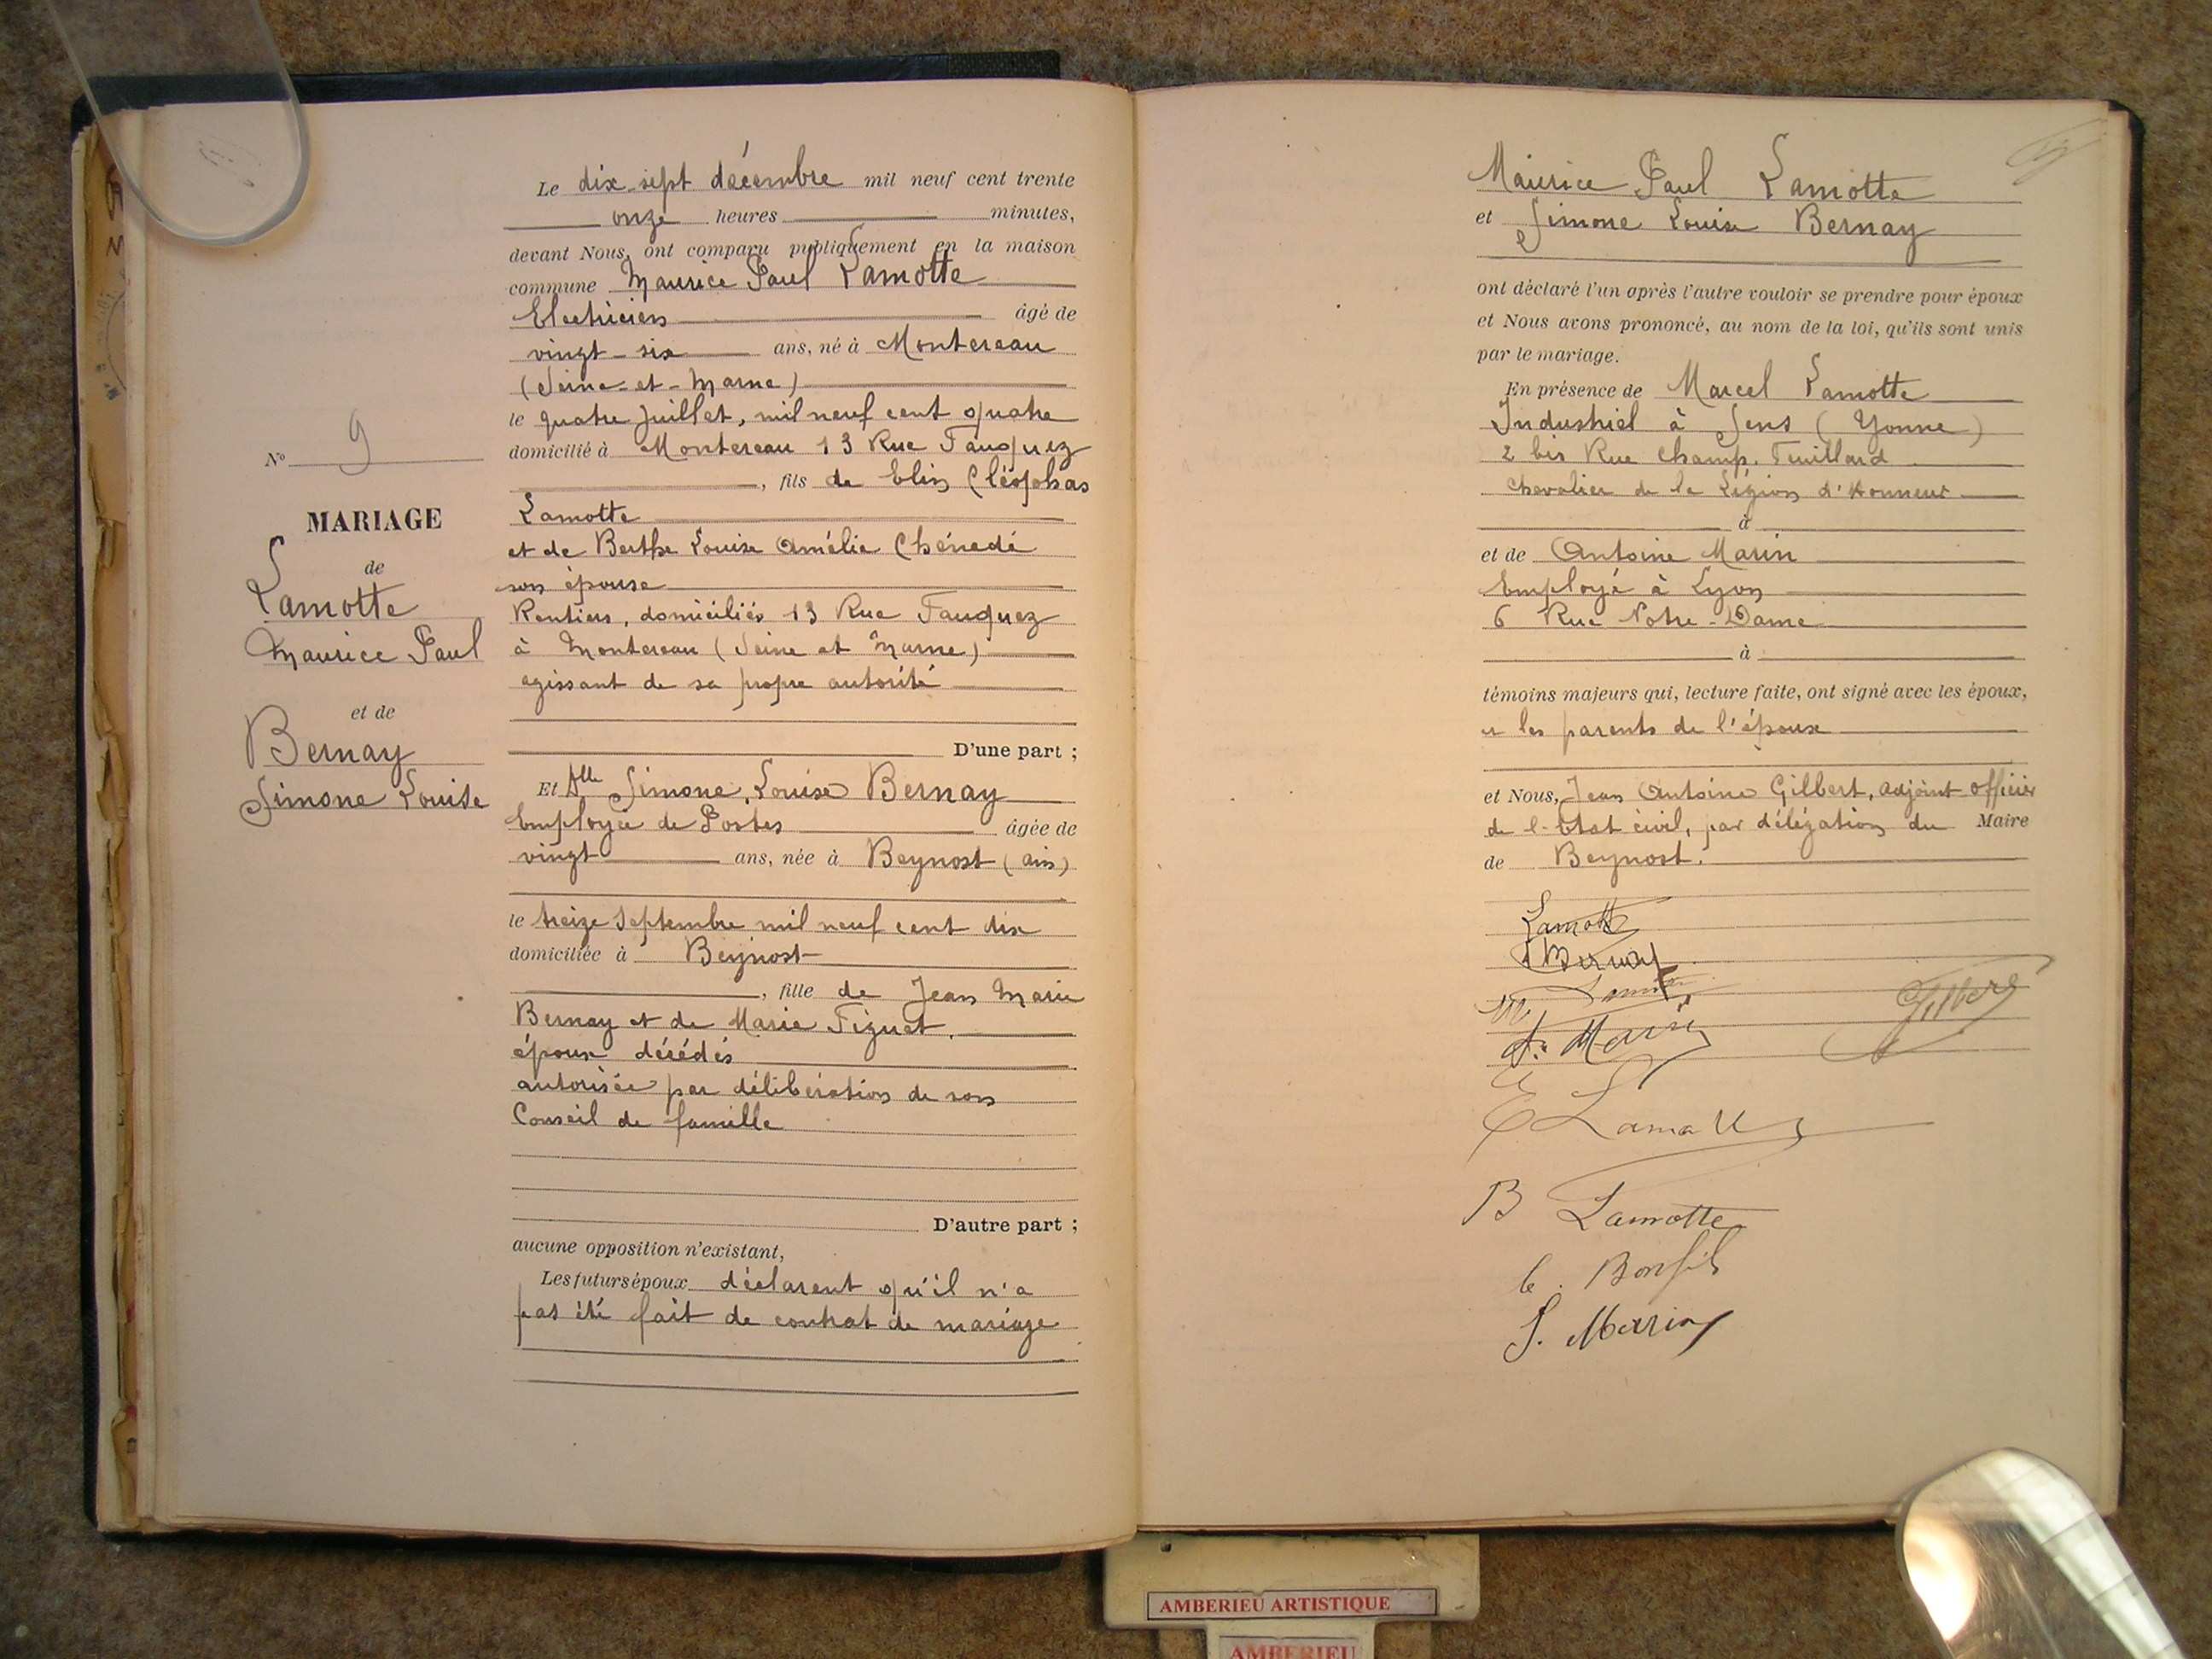 Le dix-sept décembre mil neuf cent trente
onze heures minutes,
devant Nous, ont comparu publiquement en la maison
commune Maurice Paul Lamotte
Electricien âgé de
vingt-six ans, né à Montereau
(Seine-et-Marne)
le quatre Juillet, mil neuf cent quatre
domicilié à Montereau 13 Rue Fauquez
, fils de Elin Cléophas
Lamotte
et de Berthe Louise Amélie Chénedé
son épouse
Rentiers, domiciliés 13 Rue Fauquez
à Montereau (Seine et Marne)
agissant de sa propre autorité
D'une part ;
Et Dlle Simone, Louise Bernay
Employée de Postes âgée de
vingt ans, née à Beynost (ain)
le treize Septembre mil neuf cent dix
domiciliée à Beynost
, fille de Jean Marie
Bernay et de Marie Figuet,
époux décédés
autorisée par délibération de son
Conseil de famille
D'autre part ;
aucune opposition n'existant,
Les futurs époux déclarent qu'il n'a
pas été fait de contrat de mariage
N° 9
MARIAGE
de
Lamotte
Maurice Paul
et de
Bernay
Simone Louise
Maurice Paul Lamotte
et Simone Louise Bernay
ont déclaré l'un après l'autre vouloir se prendre pour époux
et Nous avons prononcé, au nom de la loi, qu'ils sont unis
par le mariage.
En présence de Marcel Lamotte
Industriel à Sens (Yonne)
2 bis Rue Champ. Feuillard
Chevalier de la Légion d'Honneur
à
et de Antoine Marin
Employé à Lyon
6 Rue Notre-Dame
à
témoins majeurs qui, lecture faite, ont signé avec les époux,
et les parents de l'époux
et Nous, Jean Antoine Gilbert, adjoint officier
de l'Etat civil, par délégation du Maire
de Beynost.
Lamotte
S Bernay
Gilbert
A. Marin
E Lamotte
B Lamotte
C. Bonfils
S. Marin
AMBERIEU ARTISTIQUE
AMBERIEU